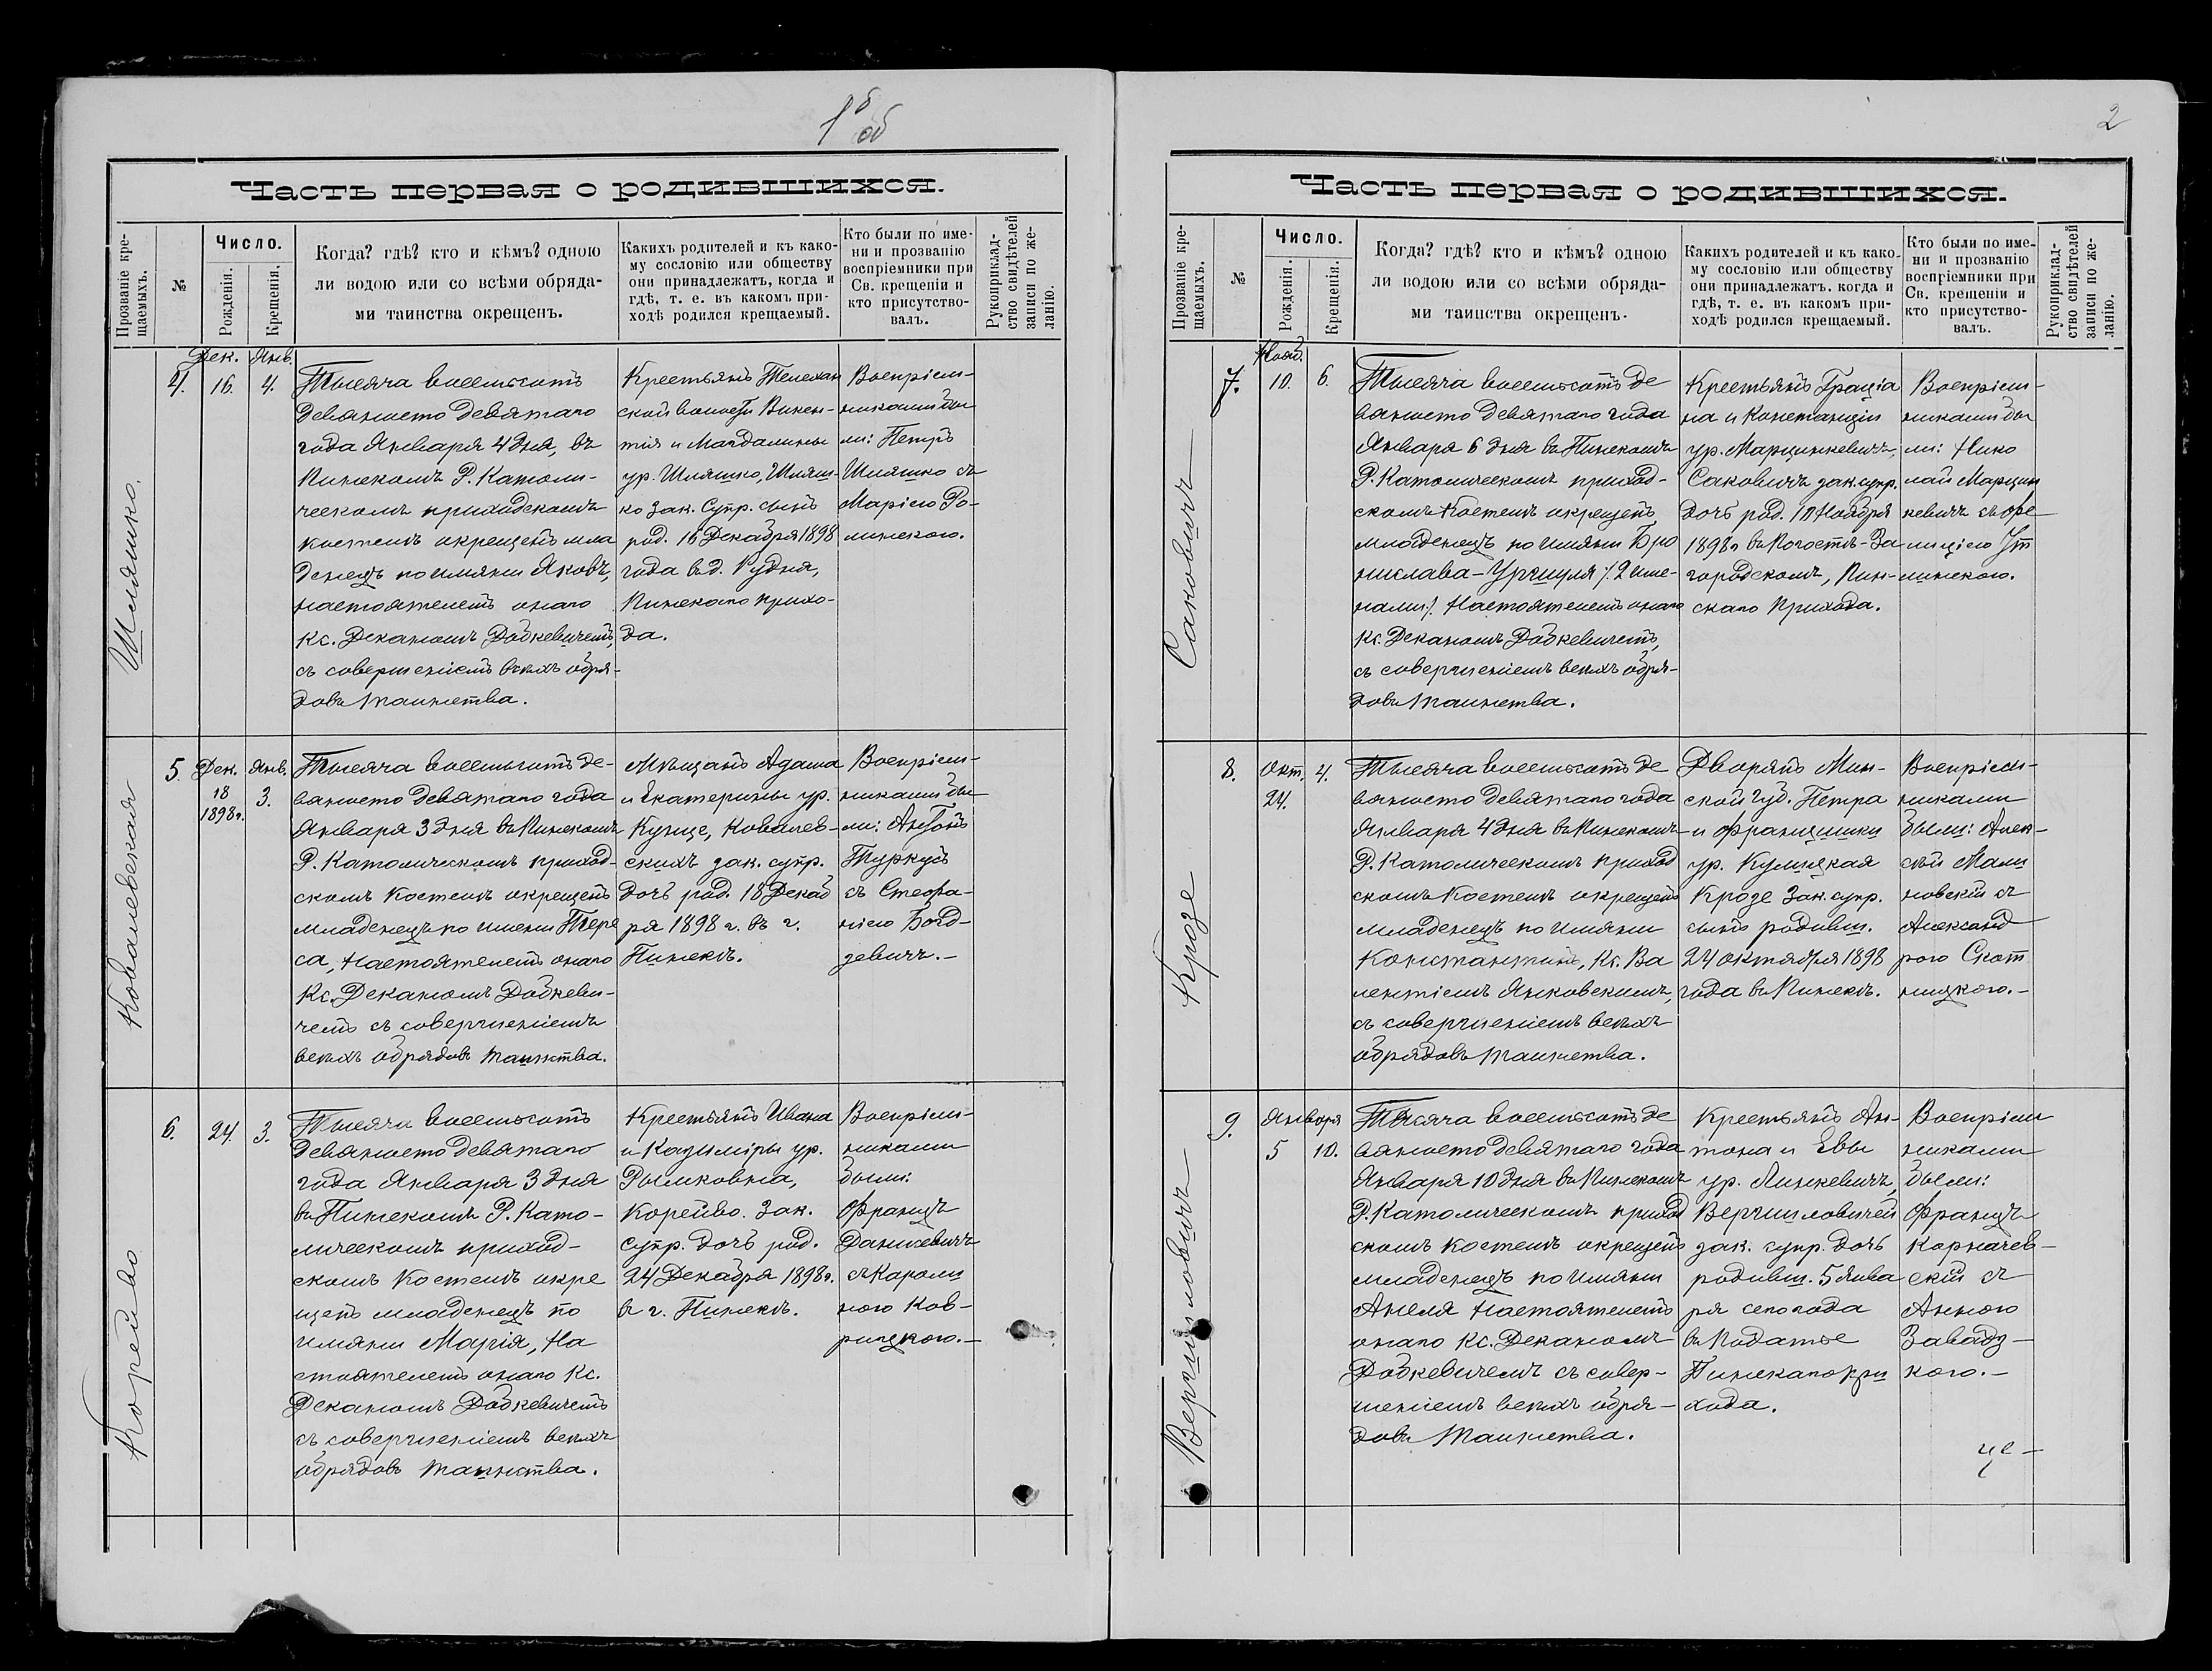 1 об
Часть первая о родившихся.
Прозваніе кре-
щаемыхъ.
№
Число.
Рожденія.
Крещенія.
Когда? гдѣ? кто и кѣмъ? одною
ли водою или со всѣми обряда-
ми таинства окрещенъ.
Какихъ родителей и къ како-
му сословію или обществу
они принадлежатъ, когда и
гдѣ, т. е. въ какомъ при-
ходѣ родился крещаемый.
Кто были по име-
ни и прозванію
воспріемники при
Св. крещеніи и
кто присутство-
валъ.
Рукоприклад-
ство свидѣтелей
записи по же-
ланію.
Шляшко.
4.
Дек.
16.
Янв.
4.
Тысяча восемьсотъ
девяносто девятаго
года Января 4 дня, въ
Пинскомъ Р. Католи-
ческомъ приходскомъ
костелѣ окрещенъ мла
денецъ по имяни Яковъ,
настоятелемъ онаго
Кс. Деканомъ Добкевичемъ,
съ совершеніемъ всѣхъ обря-
довъ таинства.
Крестьянъ Телехан
ской волости Викен-
тія и Магдалины
ур. Шляшко, Шляш-
ко зак. супр. сынъ
род. 16 Декабря 1898
года въ д. Рудня,
Пинскаго прихо-
да.
Воспріем-
никами бы
ли: Петръ
Шляшко съ
Маріею Ро-
линскою.
Ковалевская
5.
Дек.
18
1898 г.
Янв.
3.
Тысяча восемьсотъ де-
вяносто девятаго года
Января 3 дня въ Пинскомъ
Р. Католическомъ приход-
скомъ костелѣ окрещенъ
младенецъ по имени Тере
са, настоятелемъ онаго
Кс. Деканомъ Добкеви-
чемъ съ совершеніемъ
всѣхъ обрядовъ таинства.
Мѣщанъ Адама
и Екатерины ур.
Кунце, Ковалев-
скихъ зак. супр.
дочь род. 18 Декаб
ря 1898 г. въ г.
Пинскѣ.
Воспріем-
никами бы
ли: Антонъ
Туркусъ
съ Стефа-
ніею Богд-
зевичъ.-
Корейво
6.
24.
3.
Тысяча восемьсотъ
девяносто девятаго
года Января 3 дня
въ Пинскомъ Р. Като-
лическомъ приход-
скомъ костелѣ окре
щенъ младенецъ по
имяни Марія, На
стоятелемъ онаго Кс.
Деканомъ Добкевичемъ
съ совершеніемъ всѣхъ
обрядовъ таинства.
Крестьянъ Ивана
и Казиміры ур.
Рымковна,
Корейво. Зак.
супр. дочь род.
24 Декабря 1898 г.
въ г. Пинскѣ.
Воспріем-
никами
были:
Францъ
Данилевичъ
съ Кароли
ною Ков-
рицкою.-
2
Часть первая о родившихся.
Прозваніе кре-
щаемыхъ.
№
Число.
Рожденія.
Крещенія.
Когда? гдѣ? кто и кѣмъ? одною
ли водою или со всѣми обряда-
ми таинства окрещенъ.
Какихъ родителей и къ како-
му сословію или обществу
они принадлежатъ. когда и
гдѣ, т. е. въ какомъ при-
ходѣ родился крещаемый.
Кто были по име-
ни и прозванію
воспріемники при
Св. крещеніи и
кто присутство-
валъ.
Рукоприклад-
ство свидѣтелей
записи по же-
ланію.
Саковичъ
7.
Нояб.
10.
6.
Тысяча восемьсотъ де
вяносто девятаго года
Января 6 дня въ Пинскомъ
Р. Католическомъ приход-
скомъ Костелѣ окрещенъ
младенецъ по имяни Бро
нислава-Уршуля /:2 име-
нами:/. Настоятелемъ онаго
Кс. Деканомъ Добкевичемъ,
съ совершеніемъ всѣхъ обря-
довъ таинства.
Крестьянъ Граціа
на и Констанціи
ур. Марцинкевичъ,
Саковичъ зак. супр.
дочь род. 10 Ноября
1898 г. въ Погостѣ-За
городскомъ, Пин-
скаго прихода.
Воспріем-
никами бы
ли: Нико
лай Марцин
кевичъ съ Фе
лиціею Уст
линскою.
Крозе
8.
Окт.
24.
4.
Тысяча восемьсотъ де
вяносто девятаго года
Января 4 дня въ Пинскомъ
Р. Католическомъ приход
скомъ Костелѣ окрещенъ
младенецъ по имяни
Константинъ, Кс. Ва
лентіемъ Янковскимъ,
съ совершеніемъ всѣхъ
обрядовъ таинства.
Дворянъ Мин-
ской губ. Петра
и Францишки
ур. Кулицкая
Крозе Зак. супр.
сынъ родивш.
24 октября 1898
года въ Пинскѣ.
Воспріем-
никами
были: Алек-
сѣй Мали
новскій съ
Александ
рою Скот
ницкою.-
Вершиловичъ
9.
Января
5
10.
Тысяча восемьсотъ де
вяносто девятаго года
Января 10 дня въ Пинскомъ
Р. Католическомъ приход
скомъ костелѣ окрещенъ
младенецъ по имяни
Анеля Настоятелемъ
онаго Кс. Деканомъ
Добкевичемъ съ совер-
шеніемъ всѣхъ обря-
довъ таинства.
Крестьянъ Ан-
тона и Евы
ур. Линкевичъ,
Вершиловичей
зак. супр. дочь
родивш. 5 Янва
ря сего года
въ Податье
Пинскаго при
хода.
Воспріем
никами
были:
Францъ
Корначев-
скій съ
Анною
Завадз-
кою.-
це-